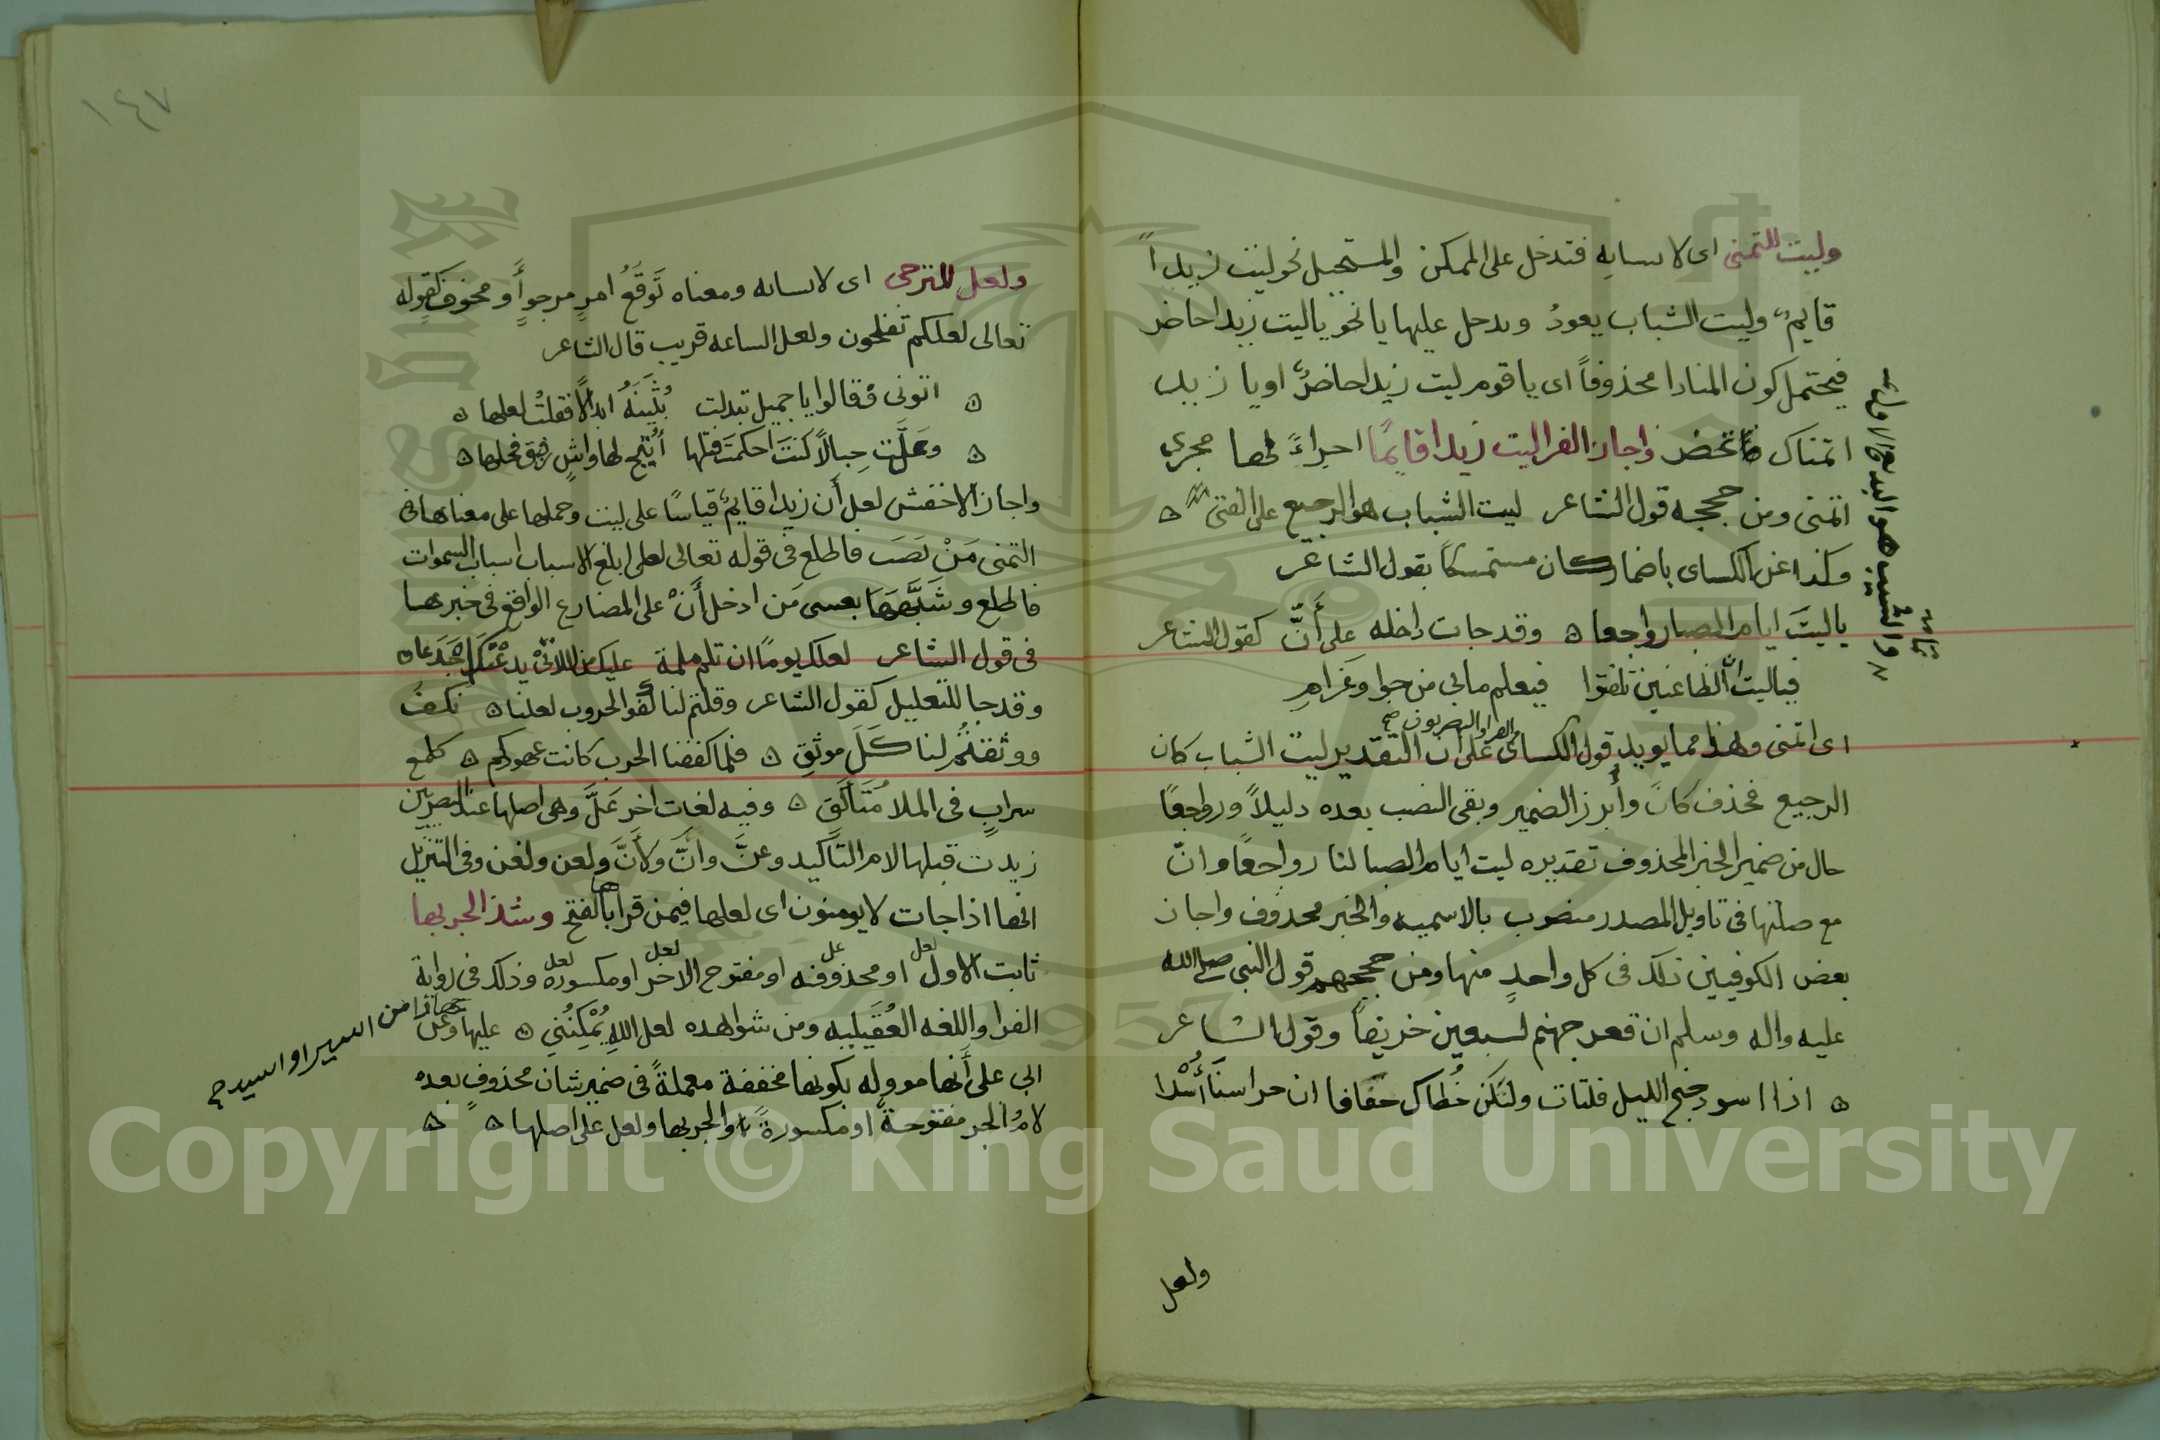 وليت للتمنى اى لانسانه فتدخل على الممكن والمستحيل نحو ليت زيداً
قايمٌ وليت الشباب يعودُ ويدخل عليها يا نحو ياليت زيدا حاضر
فيحتمل كون المنادا محذوفاً اى يا قوم ليت زيدا حاضرٌ او يا زيد
اتمناك واجاز الفرا ليت زيدا قايمًا اجراءً لها مجرى
اتمنى ومن حججه قول الشاعر ليت الشباب هو الرجيع على الفتى
والشيب هو البديع الاول
تمامه
وكذا عن الكساى باضمار كان مستمسكاً بقول الشاعر
ياليتَ ايام الصبا رواجعا وقد جات داخله على أَنّ كقول الشاعر
فياليت انّ الظاعنين تلفتوا فيعلم مابى من جوا وغَرامِ
اى اتمنى وهذا مما يويد قول الكساى على ان التقدير ليت الشباب كان
الفرا والبصريون صح
الرجيع فحذف كان وأُبرز الضمير وبقى النصب بعده دليلاً ورواجعًا
حال من ضمير الخبر المحذوف تقديره ليت ايام الصبا لنا رواجعًا وانّ
مع صلتها فى تاويل المصدر منصوب بالاسميه والخبر محذوف واجاز
بعض الكوفيين ذلك فى كل واحدٍ منها ومن حججهم قول النبى صلى الله
عليه واله وسلم ان قعر جهنم لسبعين خريفاً وقول الشاعر
اذا اسود جنح الليل فلتات ولتَكُن خُطاك خفافا ان حراسنَا أُسْدا
ولعل
١٤٧
ولعل للترجى اى لانسانه ومعناه تَوقّعُ امرٍ مرجوٍ أَو مخوفٍ كقوله
تعالى لعلكم تفلحون ولعل الساعه قريب قال الشاعر
اتونى فقالوا يا جميل تبدلت بُثَينَةُ ابدالًا فقلتُ لعلها
وعَلَّت حِبالاً كنتَ احكمتَ فتلها أُتيح لها واشٍ رفيق فحلها
واجاز الاخفش لعل أَن زيدا قايمٌ قياسًا على ليت وحملها على معناها فى
التمنى مَنْ نَصَب فاطلع فى قوله تعالى لعلى ابلغ الاسباب اسباب السموات
فاطلع وشَبَّهَهَا بعسى مَن ادخل أَنْ على المضارع الواقع فى خبرها
فى قول الشاعر لعلك يومًا ان تلم ملمة عليك من اللاتى يدعْنَك اجدعا
وقد جا للتعليل كقول الشاعر وقلتم لنا كُفّوا الحروب لعلنا نكفّ
ووثقتُم لنا كَلَ موثقِ فلما كففنا الحرب كانت عهودكم كلمع
سرابٍ فى الملا مُتَالِّقِ وفيه لغات اخر عَلَّ وهى اصلها عند البصريين
زيدت قبلها لام التاكيد وعنَّ وأَنَّ ولأَنَّ ولعن ولغن وفى التنزيل
انها اذا جات لا يومنون اى لعلها فيمن قراها بالفتح وشذ الجر بها
ثابت الاول او محذوفه او مفتوح الاخر او مكسوره وذلك فى رواية
لعل عل لعل لعل
الفرا واللغه العُقَيليه ومن شواهده لعل اللهِ يُمْكِنُنِي عليها وعن
من اسيد
ابى على أنها مووله بكونها مخففة معملةً فى ضمير شان محذوفٍ بعده
لامُ الجر مفتوحةً او مكسورةً والجر بها ولعل على اصلها
Copyright © King Saud University
1957